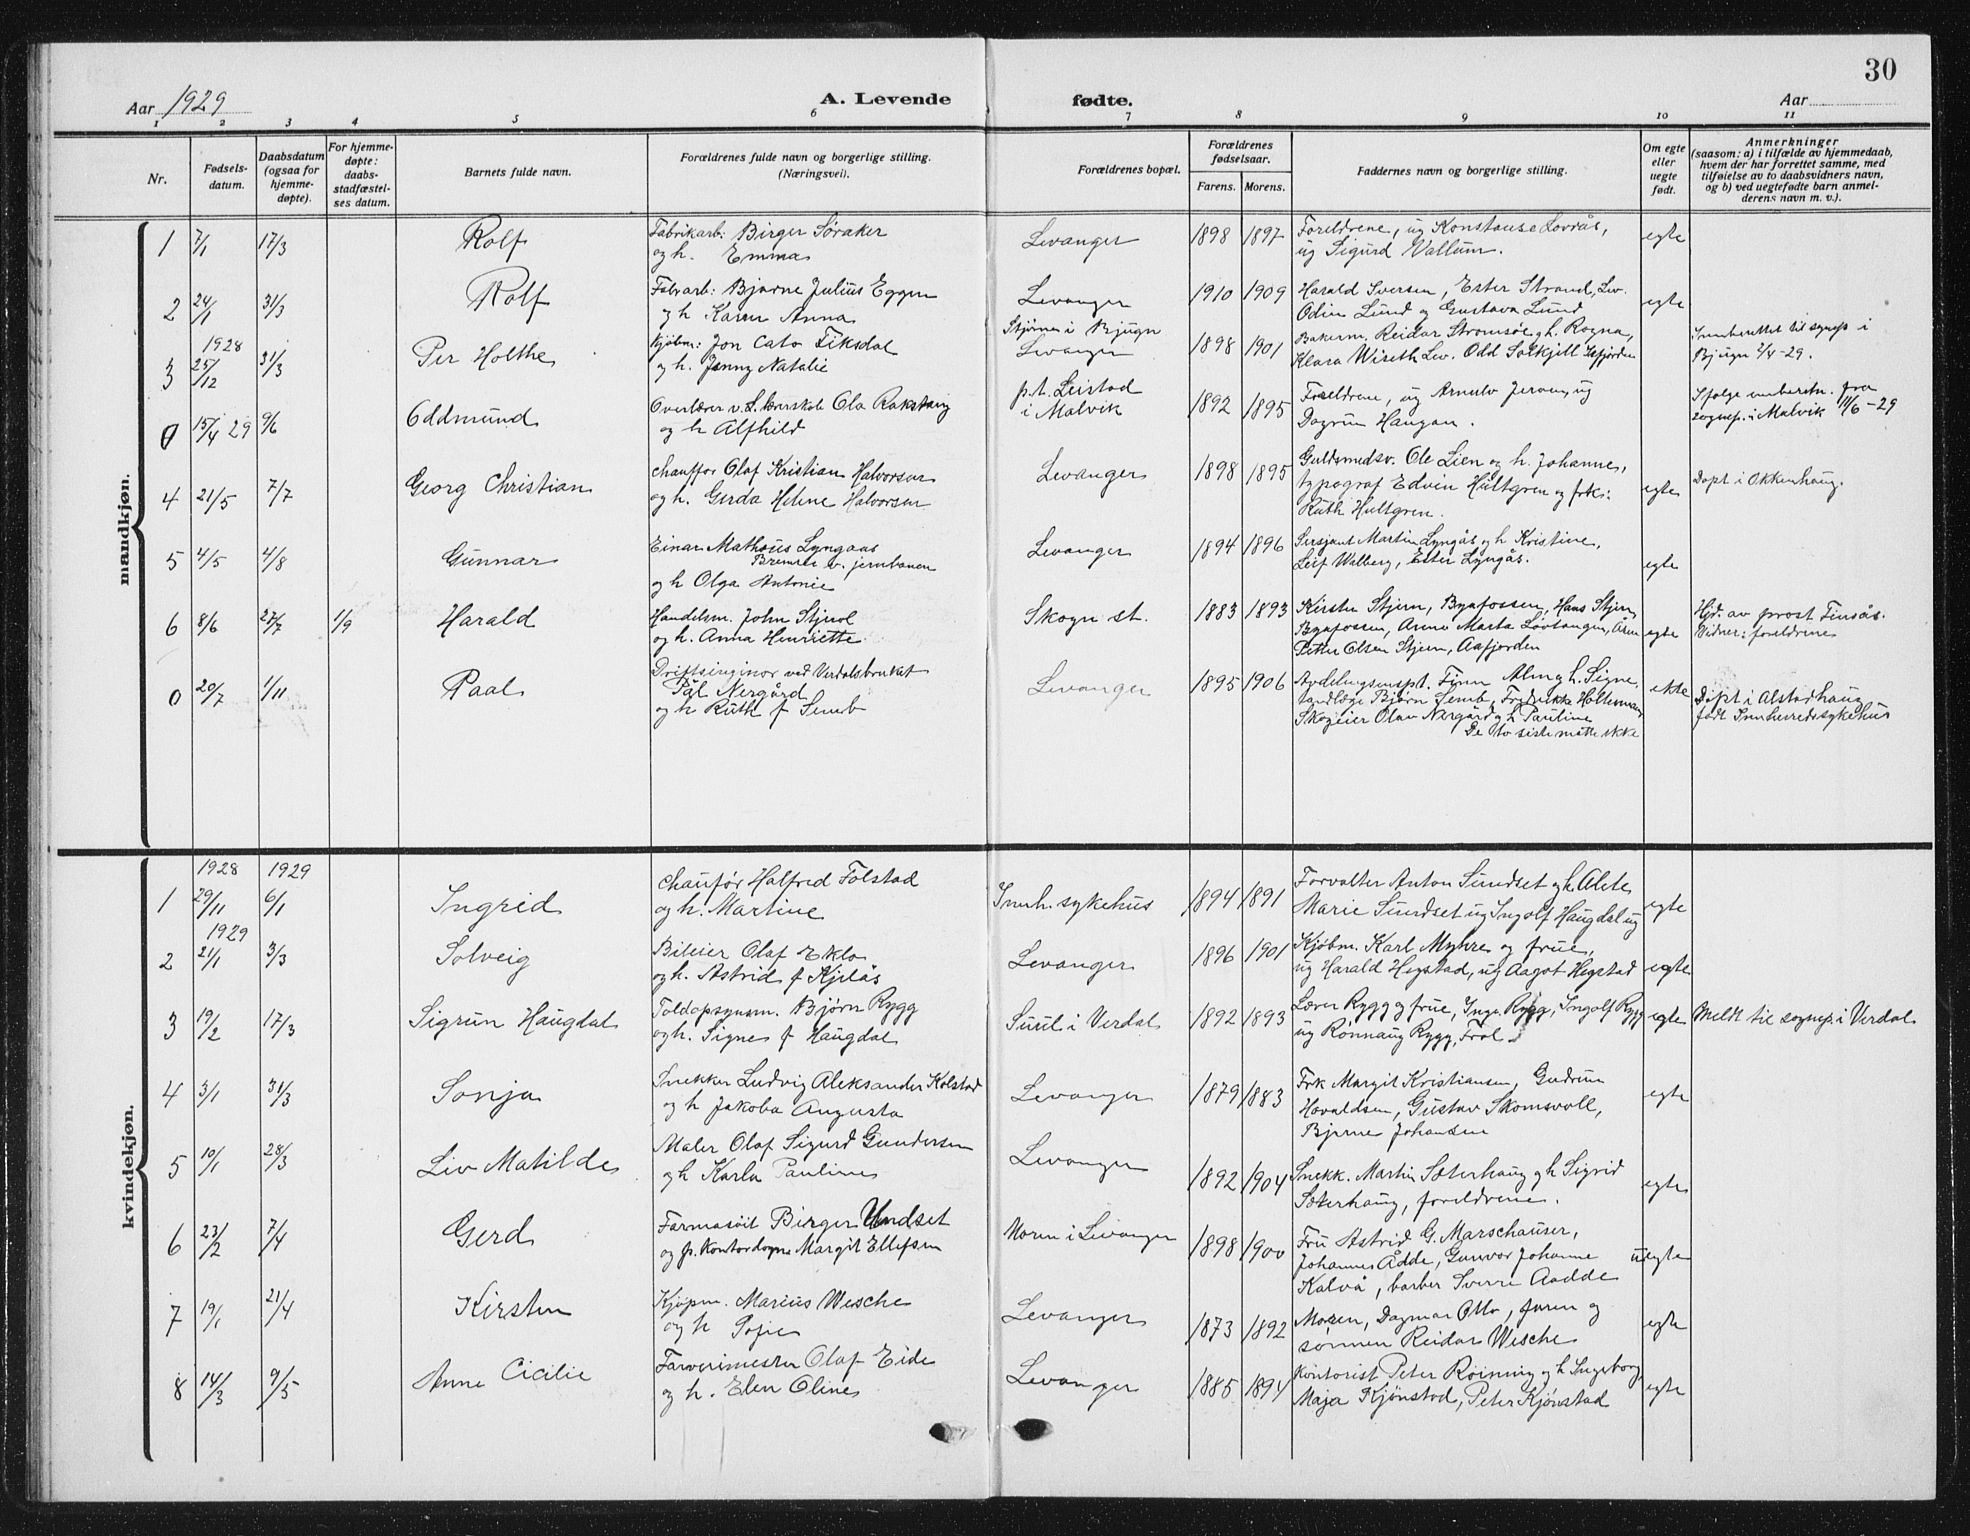 30
Aar 1929
A. Levende
fødte.
Aar
1 2 3 4 5 6 7 8 9 10 11
Nr.
Fødsels-
datum.
Daabsdatum
(ogsaa for
hjemme-
døpte).
For hjemme-
døpte:
daabs-
stadfæstel-
ses datum.
Barnets fulde navn.
Forældrenes fulde navn og borgerlige stilling.
(Næringsvei).
Forældrenes bopæl.
Forældrenes
fødselsaar.
Farens. Morens.
Faddernes navn og borgerlige stilling.
Om egte
eller
uegte
født.
Anmerkninger
(saasom: a) i tilfælde av hjemmedaab,
hvem der har forrettet samme, med
tilføielse av to daabsvidners navn,
og b) ved uegtefødte barn anmel-
derens navn m. v.).
mandkjøn.
1 7/1 17/3 Rolf
Fabrikarb: Birger Søraker
og h. Emma
Levanger 1898 1897
Foreldrene, ug Konstanse Lovrås,
ug Sigurd Wallum.
egte
2 24/1 31/3 Rolf
Fabrarb: Bjarne Julius Eggen
og h Karen Anna
Levanger 1910 1909
Harald Iversen, Ester Strand, Lev.
Odin Lund og Gustava Lund
egte
1928
3 25/12 31/3 Per Holthe
Kjøbm: Jon Cato Fiksdal
og h. Jenny Natalie
Stjørna i Bjugn
Levanger
1898 1901
Bakerm. Reidar Strømsøe g h. Ragna,
Klara Wiseth Lev. Odd Solkjill
Innberettet til sognep i
Bjugn 2/4-29.
0 15/4 29 9/6 Oddmund
Overlærer v. S. lærerskole Ola Rakstang
og h Alfhild
p.t. Leistad
i Malvik
1892 1895
Foreldrene, ug Arnulv Jervan, ug
Dagrun Haugan.
Ifølge innberetn. fra
sognep. i Malvik 11/6-29
4 21/5 7/7 Georg Christian
Chauffør Olaf Kristian Halvorsen
og h. Gerda Helene Halvorsen
Levanger 1898 1895
Guldsmedsv. Ole Lien og h. Johanne,
typograf Edvin Hultgren og frk:
Ruth Hultgren.
egte
Døpt i Okkenhaug.
5 4/5 4/8 Gunnar
Einar Mathæus Lyngaas
Bremser v. jernbanen
og h Olga Antonie
Levanger 1894 1896
Sersjant Martin Lyngås g h Kristine,
Leif Walberg, Ester Lyngås.
egte
6 8/6 27/7 1/9 Harald
Handelsm. John Stjern
og h. Anna Henriette
Skogn st. 1883 1893
Kirsten Stjern, Bynfossen, Hans Stjern
Bynfossen, Anna Marta Løvtangen, Åsen
Petter Olsen Stjern, Aafjorden
egte
Hjd. av prost Finsås.
Vidner: foreldrene
0 20/7 1/11 Paal
Driftsinginør ved Verdalsbruket
Pål Nergård
og h Ruth f Semb
Levanger 1895 1906
Avdelingsinspt. Finn Alm g h. Signe,
tandlæge Bjørn Semb, Fredrikke Holterman
Skogeier Olav Nergård g h Pauline
De to siste møtte ikke
ekte
Døpt i Alstadhaug
født Innherredssykehus
kvindekjøn.
1928 1929
1 29/11 6/1 Ingrid
Chaufør Halfred Tolstad
og h. Martine
Innh. sykehus 1894 1891
Forvalter Anton Sundset g h Alete
Marie Sundset ug Ingolf Haugdal ug
egte
1929
2 21/1 3/3 Solveig
Bileier Olaf Eklo
og h. Astrid f Kjelås
Levanger 1896 1901
Kjøbm. Karl Myhre og frue,
ug Harald Hegstad, ug Aagot Hegstad
egte
3 19/2 17/3 Sigrun Haugdal
Toldopsynsm. Bjørn Rygg
og h. Signe f Haugdal
Suul i Verdal 1892 1893
Lærer Rygg g frue, Inga Rygg, Ingolf Rygg
ug Rønnaug Rygg, Frol
egte
Meldt til sognep. i Verdal
4 3/1 31/3 Sonja
Snekker Ludvig Aleksander Kolstad
og h Jakoba Augusta
Levanger 1879 1883
Frk Margit Kristiansen, Gudrun
Havaldsen, Gustav Skomsvoll,
Bjarne Johansen
egte
5 10/1 28/3 Liv Matilde
Maler Olaf Sigurd Gundersen
g h Karla Pauline
Levanger 1892 1904
Snekk. Martin Sæterhaug g h Sigrid
Sæterhaug, foreldrene.
egte
6 23/2 7/4 Gerd
Farmasøit Birger Undset
og p. Kontordame Margit Ellefsen
Moren i Levanger 1898 1900
Fru Astrid G. Marschauser,
Johannes Ådde, Gunvor Johanne
Kalvå, barber Sverre Aadde
uegte
7 19/1 21/4 Kirsten
Kjøpm. Marius Wesche
og h Sofie
Levanger 1873 1892
Moren, Dagmar Otto, faren og
sønnen Reidar Wesche
egte
8 14/3 9/5 Anne Cicilie
Farverimester Olaf Eide
og h. Elen Oline
Levanger 1885 1894
Kontorist Peter Røinning g h Ingeborg,
Maja Kjønstad, Peter Kjønstad
egte